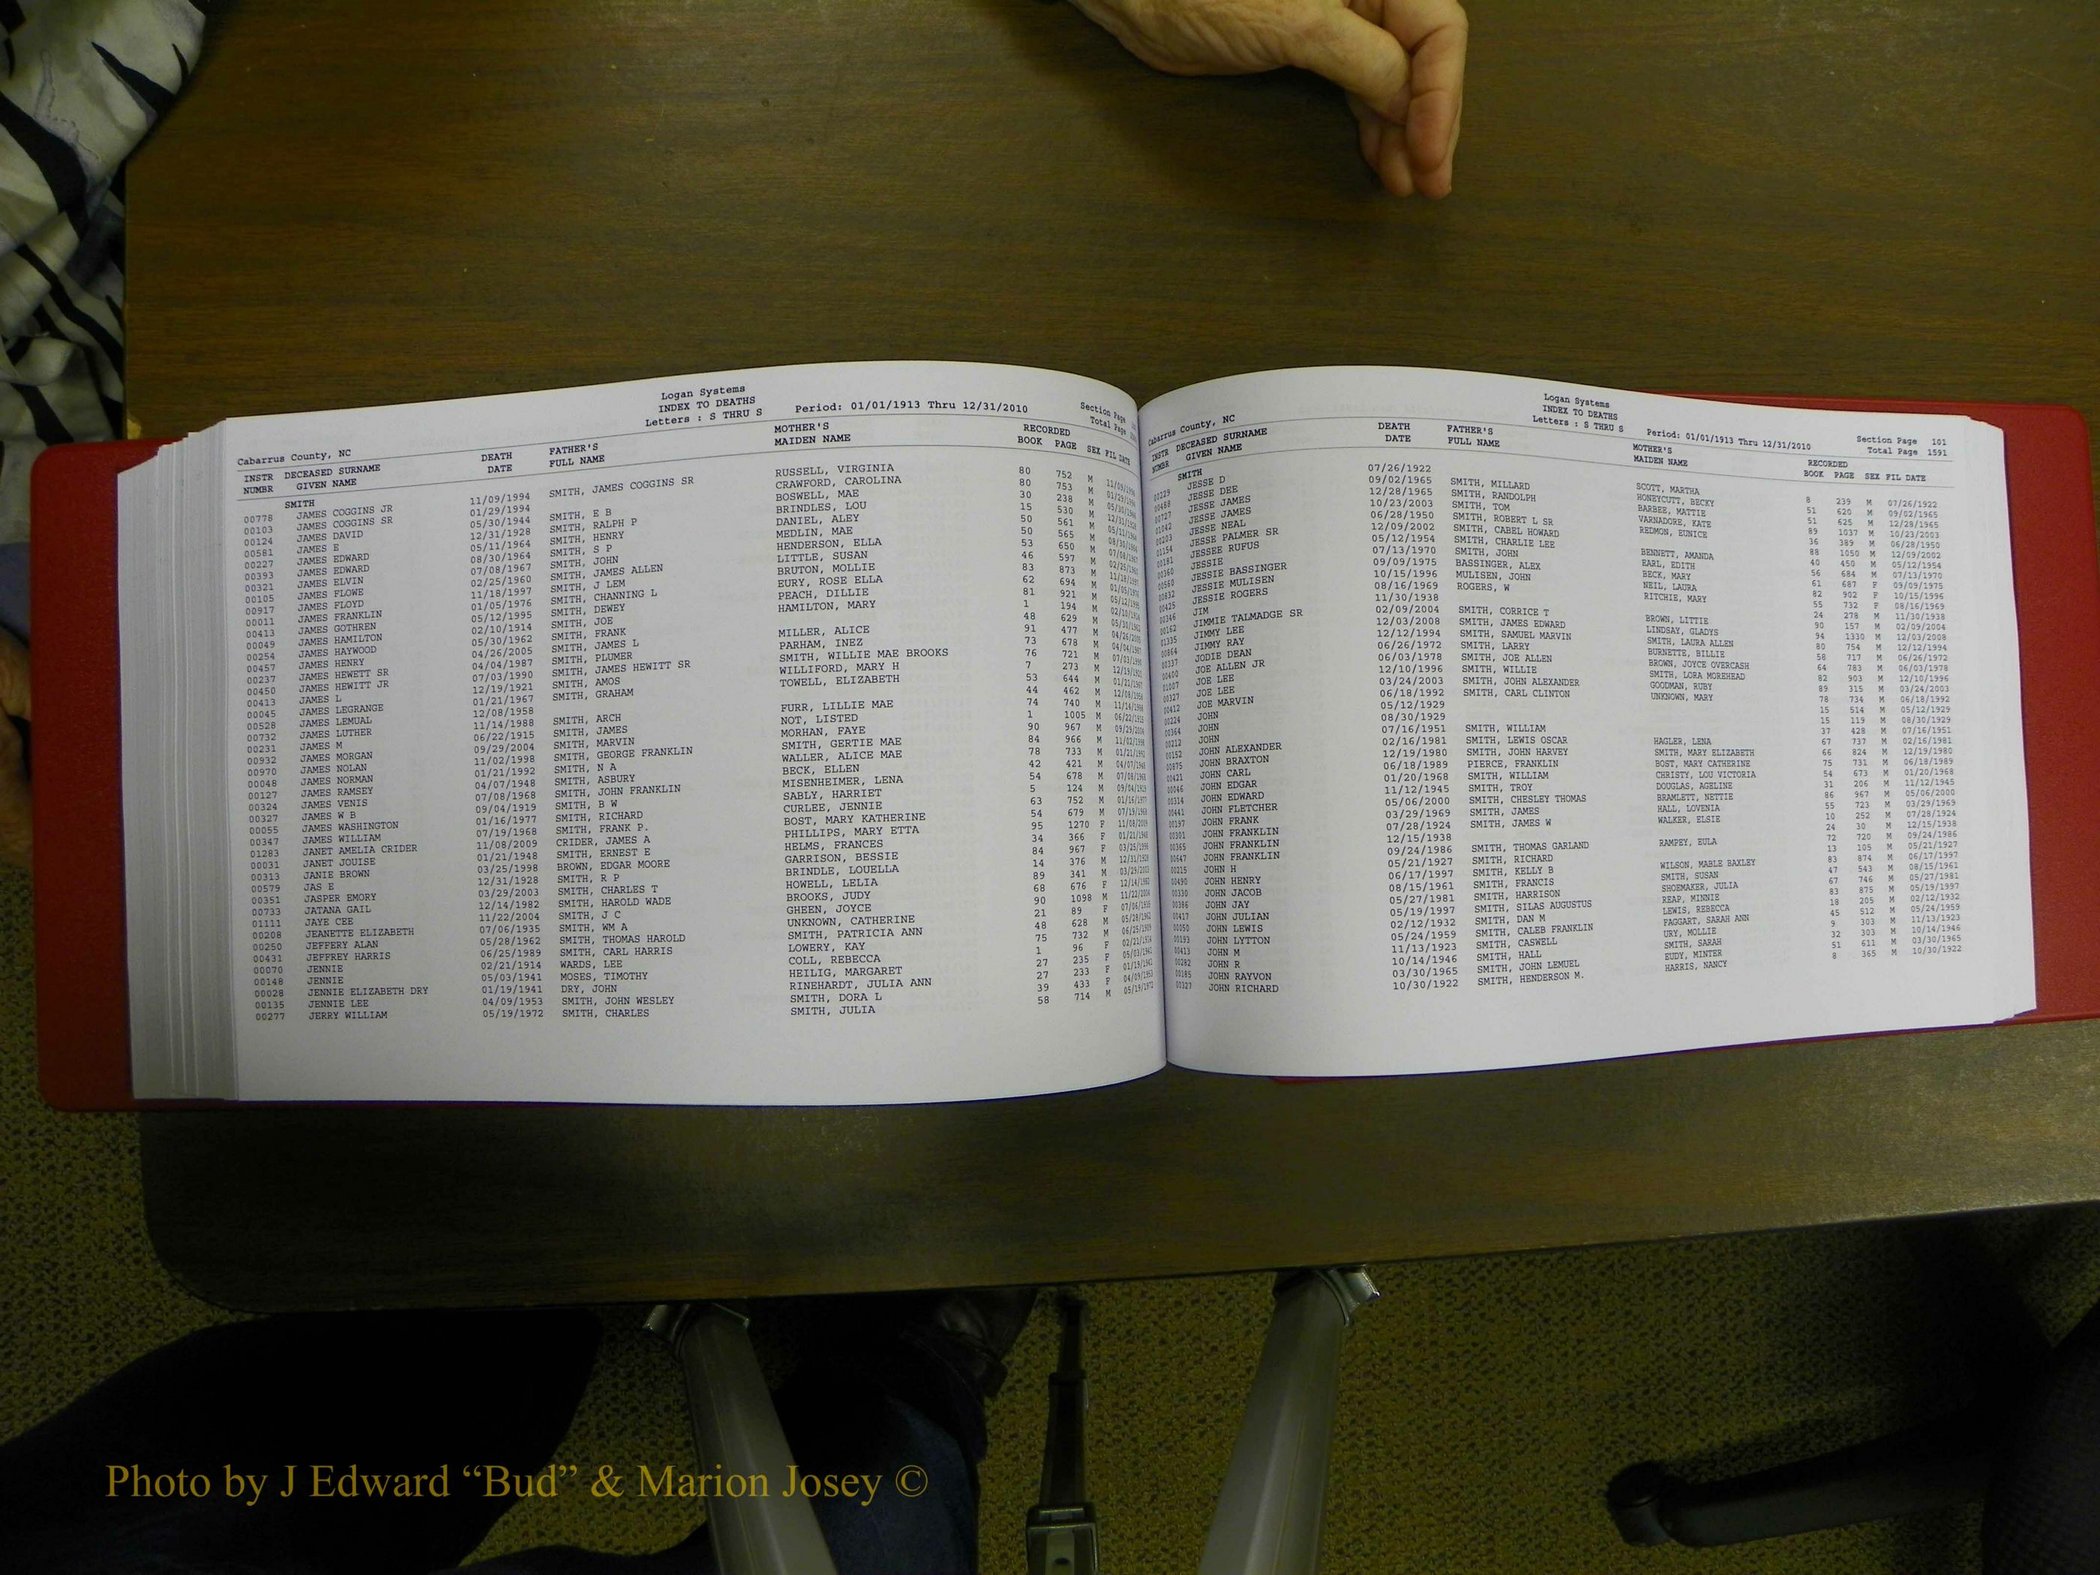 Logan Systems
INDEX TO DEATHS
Letters : S THRU S Period: 01/01/1913 Thru 12/31/2010
Section Page
Total Page
Cabarrus County, NC
INSTR DECEASED SURNAME DEATH FATHER'S MOTHER'S RECORDED
NUMBR GIVEN NAME DATE FULL NAME MAIDEN NAME BOOK PAGE SEX FIL DATE
SMITH
00778 JAMES COGGINS JR 11/09/1994 SMITH, JAMES COGGINS SR RUSSELL, VIRGINIA 80 752 M
00103 JAMES COGGINS SR 01/29/1994 CRAWFORD, CAROLINA 80 753 M
00124 JAMES DAVID 05/30/1944 SMITH, E B BOSWELL, MAE 30 238 M
00581 JAMES E 12/31/1928 SMITH, RALPH P BRINDLES, LOU 15 530 M
00227 JAMES EDWARD 05/11/1964 SMITH, HENRY DANIEL, ALEY 50 561 M
00393 JAMES EDWARD 08/30/1964 SMITH, S P MEDLIN, MAE 50 565 M
00321 JAMES ELVIN 07/08/1967 SMITH, JOHN HENDERSON, ELLA 53 650 M
00105 JAMES FLOWE 02/25/1960 SMITH, JAMES ALLEN LITTLE, SUSAN 46 597 M
00917 JAMES FLOYD 11/18/1997 SMITH, J LEM BRUTON, MOLLIE 83 873 M
00011 JAMES FRANKLIN 01/05/1976 SMITH, CHANNING L EURY, ROSE ELLA 62 694 M
00413 JAMES GOTHREN 05/12/1995 SMITH, DEWEY PEACH, DILLIE 81 921 M
00049 JAMES HAMILTON 02/10/1914 SMITH, JOE HAMILTON, MARY 1 194 M
00254 JAMES HAYWOOD 05/30/1962 SMITH, FRANK 48 629 M
00457 JAMES HENRY 04/26/2005 SMITH, JAMES L MILLER, ALICE 91 477 M
00237 JAMES HEWETT SR 04/04/1987 SMITH, PLUMER PARHAM, INEZ 73 678 M
00450 JAMES HEWITT JR 07/03/1990 SMITH, JAMES HEWITT SR SMITH, WILLIE MAE BROOKS 76 721 M
00413 JAMES L 12/19/1921 SMITH, AMOS WILLIFORD, MARY H 7 273 M
00045 JAMES LEGRANGE 01/21/1967 SMITH, GRAHAM TOWELL, ELIZABETH 53 644 M
00528 JAMES LEMUAL 12/08/1958 44 462 M
00732 JAMES LUTHER 11/14/1988 SMITH, ARCH FURR, LILLIE MAE 74 740 M
00231 JAMES M 06/22/1915 SMITH, JAMES NOT, LISTED 1 1005 M
00932 JAMES MORGAN 09/29/2004 SMITH, MARVIN MORHAN, FAYE 90 967 M
00970 JAMES NOLAN 11/02/1998 SMITH, GEORGE FRANKLIN SMITH, GERTIE MAE 84 966 M
00048 JAMES NORMAN 01/21/1992 SMITH, N A WALLER, ALICE MAE 78 733 M
00127 JAMES RAMSEY 04/07/1948 SMITH, ASBURY BECK, ELLEN 42 421 M
00324 JAMES VENIS 07/08/1968 SMITH, JOHN FRANKLIN MISENHEIMER, LENA 54 678 M
00327 JAMES W B 09/04/1919 SMITH, B W SABLY, HARRIET 5 124 M
00055 JAMES WASHINGTON 01/16/1977 SMITH, RICHARD CURLEE, JENNIE 63 752 M
00347 JAMES WILLIAM 07/19/1968 SMITH, FRANK P. BOST, MARY KATHERINE 54 679 M
01283 JANET AMELIA CRIDER 11/08/2009 CRIDER, JAMES A PHILLIPS, MARY ETTA 95 1270 F
00031 JANET JOUISE 01/21/1948 SMITH, ERNEST E HELMS, FRANCES 34 366 F
00313 JANIE BROWN 03/25/1998 BROWN, EDGAR MOORE GARRISON, BESSIE 84 967 F
00579 JAS E 12/31/1928 SMITH, R P BRINDLE, LOUELLA 14 376 M
00351 JASPER EMORY 03/29/2003 SMITH, CHARLES T HOWELL, LELIA 89 341 M
00733 JATANA GAIL 12/14/1982 SMITH, HAROLD WADE BROOKS, JUDY 68 676 F
01111 JAYE CEE 11/22/2004 SMITH, J C GHEEN, JOYCE 90 1098 M
00208 JEANETTE ELIZABETH 07/06/1935 SMITH, WM A UNKNOWN, CATHERINE 21 89 F
00250 JEFFERY ALAN 05/28/1962 SMITH, THOMAS HAROLD SMITH, PATRICIA ANN 48 628 M
00431 JEFFREY HARRIS 06/25/1989 SMITH, CARL HARRIS LOWERY, KAY 75 732 M
00070 JENNIE 02/21/1914 WARDS, LEE COLL, REBECCA 1 96 F
00148 JENNIE 05/03/1941 MOSES, TIMOTHY HEILIG, MARGARET 27 235 F
00028 JENNIE ELIZABETH DRY 01/19/1941 DRY, JOHN RINEHARDT, JULIA ANN 27 233 F
00135 JENNIE LEE 04/09/1953 SMITH, JOHN WESLEY SMITH, DORA L 39 433 F
00277 JERRY WILLIAM 05/19/1972 SMITH, CHARLES SMITH, JULIA 58 714 M
Logan Systems
INDEX TO DEATHS
Letters : S THRU S Period: 01/01/1913 Thru 12/31/2010
Section Page 101
Total Page 1591
Cabarrus County, NC
INSTR DECEASED SURNAME DEATH FATHER'S MOTHER'S RECORDED
NUMBR GIVEN NAME DATE FULL NAME MAIDEN NAME BOOK PAGE SEX FIL DATE
SMITH
00229 JESSE D 07/26/1922 SCOTT, MARTHA 8 239 M 07/26/1922
00488 JESSE DEE 09/02/1965 SMITH, MILLARD HONEYCUTT, BECKY 51 620 M 09/02/1965
00727 JESSE JAMES 12/28/1965 SMITH, RANDOLPH BARBEE, MATTIE 51 625 M 12/28/1965
01042 JESSE JAMES 10/23/2003 SMITH, TOM VARNADORE, KATE 89 1037 M 10/23/2003
00203 JESSE NEAL 06/28/1950 SMITH, ROBERT L SR REDMON, EUNICE 36 389 M 06/28/1950
01154 JESSE PALMER SR 12/09/2002 SMITH, CABEL HOWARD 88 1050 M 12/09/2002
00181 JESSEE RUFUS 05/12/1954 SMITH, CHARLIE LEE BENNETT, AMANDA 40 450 M 05/12/1954
00360 JESSIE 07/13/1970 SMITH, JOHN EARL, EDITH 56 684 M 07/13/1970
00560 JESSIE BASSINGER 09/09/1975 BASSINGER, ALEX BECK, MARY 61 687 F 09/09/1975
00832 JESSIE MULISEN 10/15/1996 MULISEN, JOHN NEIL, LAURA 82 902 F 10/15/1996
00425 JESSIE ROGERS 08/16/1969 ROGERS, W RITCHIE, MARY 55 732 F 08/16/1969
00346 JIM 11/30/1938 24 278 M 11/30/1938
00162 JIMMIE TALMADGE SR 02/09/2004 SMITH, CORRICE T BROWN, LITTIE 90 157 M 02/09/2004
01335 JIMMY LEE 12/03/2008 SMITH, JAMES EDWARD LINDSAY, GLADYS 94 1330 M 12/03/2008
00864 JIMMY RAY 12/12/1994 SMITH, SAMUEL MARVIN SMITH, LAURA ALLEN 80 754 M 12/12/1994
00337 JODIE DEAN 06/26/1972 SMITH, LARRY BURNETTE, BILLIE 58 717 M 06/26/1972
00400 JOE ALLEN JR 06/03/1978 SMITH, JOE ALLEN BROWN, JOYCE OVERCASH 64 783 M 06/03/1978
01007 JOE LEE 12/10/1996 SMITH, WILLIE SMITH, LORA MOREHEAD 82 903 M 12/10/1996
00327 JOE LEE 03/24/2003 SMITH, JOHN ALEXANDER GOODMAN, RUBY 89 315 M 03/24/2003
00412 JOE MARVIN 06/18/1992 SMITH, CARL CLINTON UNKNOWN, MARY 78 734 M 06/18/1992
00224 JOHN 05/12/1929 15 514 M 05/12/1929
00364 JOHN 08/30/1929 15 119 M 08/30/1929
00212 JOHN 07/16/1951 SMITH, WILLIAM 37 428 M 07/16/1951
00152 JOHN ALEXANDER 02/16/1981 SMITH, LEWIS OSCAR HAGLER, LENA 67 737 M 02/16/1981
00875 JOHN BRAXTON 12/19/1980 SMITH, JOHN HARVEY SMITH, MARY ELIZABETH 66 824 M 12/19/1980
00421 JOHN CARL 06/18/1989 PIERCE, FRANKLIN BOST, MARY CATHERINE 75 731 M 06/18/1989
00046 JOHN EDGAR 01/20/1968 SMITH, WILLIAM CHRISTY, LOU VICTORIA 54 673 M 01/20/1968
00314 JOHN EDWARD 11/12/1945 SMITH, TROY DOUGLAS, AGELINE 31 206 M 11/12/1945
00441 JOHN FLETCHER 05/06/2000 SMITH, CHESLEY THOMAS BRAMLETT, NETTIE 86 967 M 05/06/2000
00197 JOHN FRANK 03/29/1969 SMITH, JAMES HALL, LOVENIA 55 723 M 03/29/1969
00301 JOHN FRANKLIN 07/28/1924 SMITH, JAMES W WALKER, ELSIE 10 252 M 07/28/1924
00365 JOHN FRANKLIN 12/15/1938 24 30 M 12/15/1938
00647 JOHN FRANKLIN 09/24/1986 SMITH, THOMAS GARLAND RAMPEY, EULA 72 720 M 09/24/1986
00215 JOHN H 05/21/1927 SMITH, RICHARD 13 105 M 05/21/1927
00490 JOHN HENRY 06/17/1997 SMITH, KELLY B WILSON, MABLE BAXLEY 83 874 M 06/17/1997
00330 JOHN JACOB 08/15/1961 SMITH, FRANCIS SMITH, SUSAN 47 543 M 08/15/1961
00386 JOHN JAY 05/27/1981 SMITH, HARRISON SHOEMAKER, JULIA 67 746 M 05/27/1981
00417 JOHN JULIAN 05/19/1997 SMITH, SILAS AUGUSTUS REAP, MINNIE 83 875 M 05/19/1997
00050 JOHN LEWIS 02/12/1932 SMITH, DAN M LEWIS, REBECCA 18 205 M 02/12/1932
00193 JOHN LYTTON 05/24/1959 SMITH, CALEB FRANKLIN FAGGART, SARAH ANN 45 512 M 05/24/1959
00413 JOHN M 11/13/1923 SMITH, CASWELL URY, MOLLIE 9 303 M 11/13/1923
00282 JOHN R 10/14/1946 SMITH, HALL SMITH, SARAH 32 303 M 10/14/1946
00185 JOHN RAYVON 03/30/1965 SMITH, JOHN LEMUEL EUDY, MINTER 51 611 M 03/30/1965
00327 JOHN RICHARD 10/30/1922 SMITH, HENDERSON M. HARRIS, NANCY 8 365 M 10/30/1922
Photo by J Edward “Bud” & Marion Josey ©